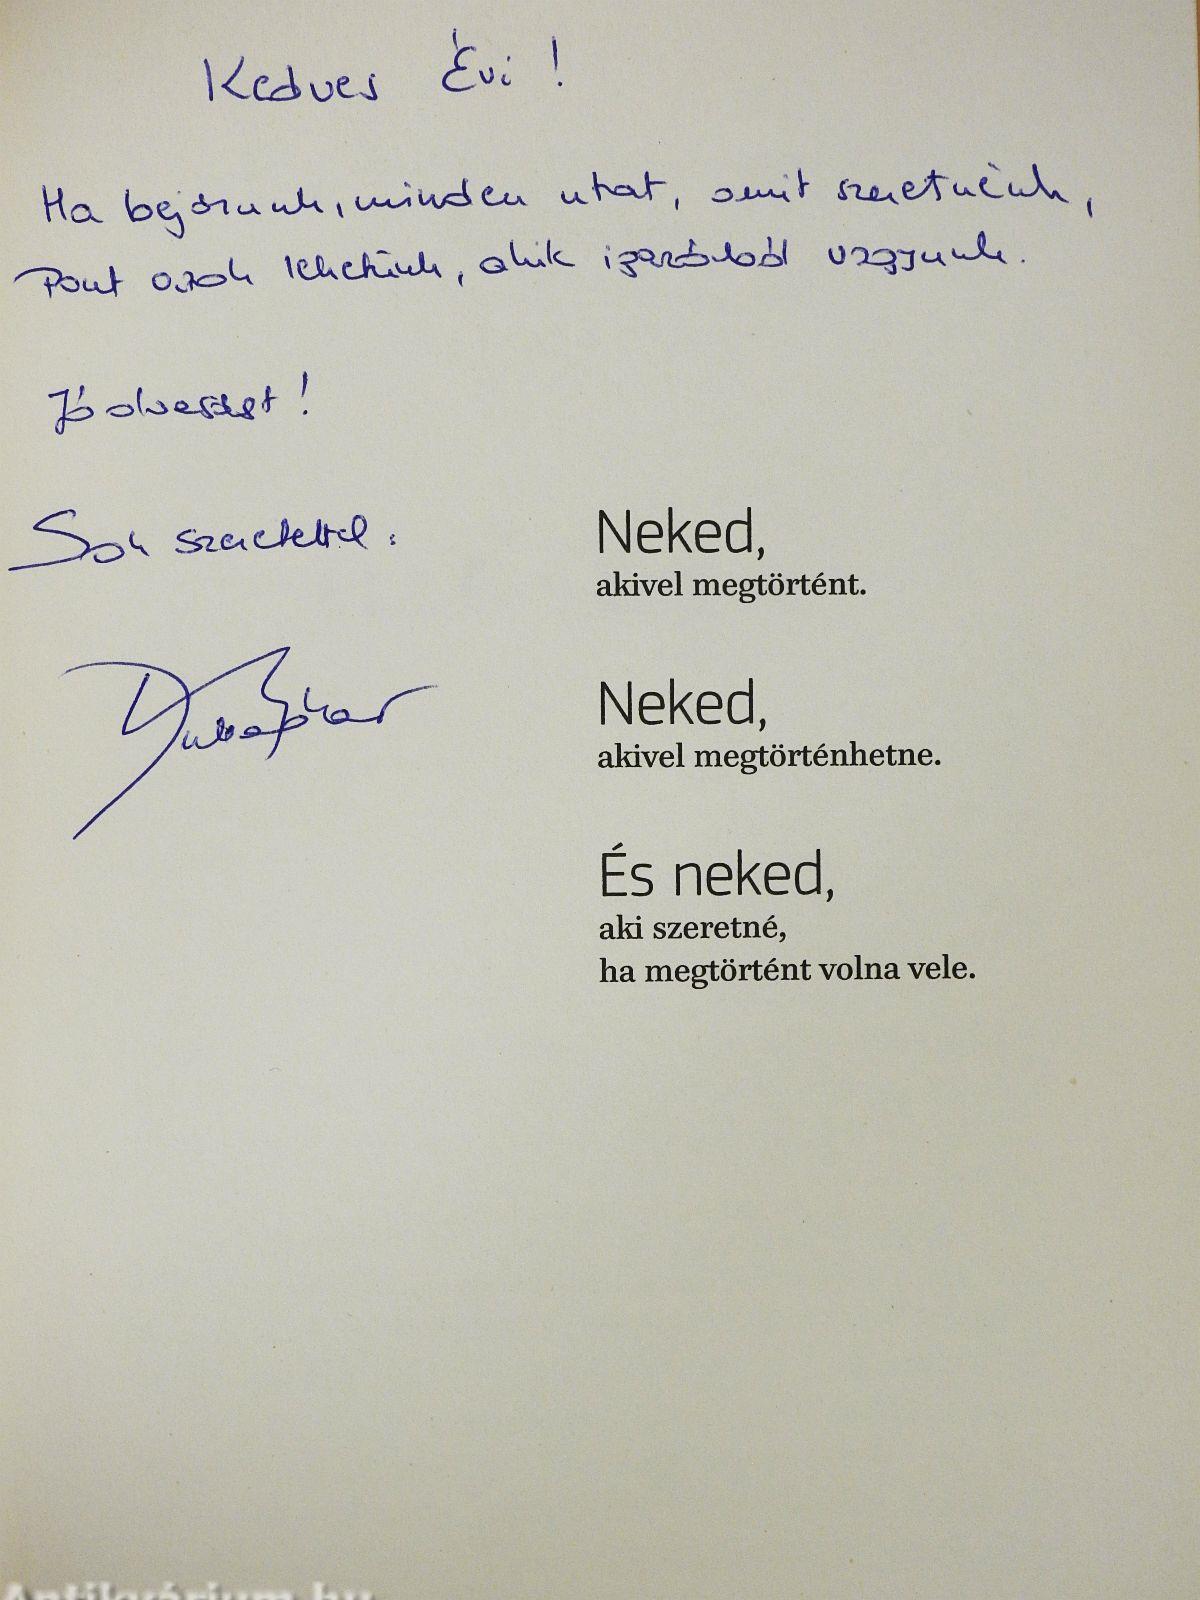 Kedves Évi!
Ha bejárunk, minden utat, amit szeretnénk,
Pont azok lehetünk, akik igazából vagyunk.
Jó olvasást!
Sok szeretettel:
Neked,
akivel megtörtént.
Neked,
akivel megtörténhetne.
És neked,
aki szeretné,
ha megtörtént volna vele.
Antikvárium.hu